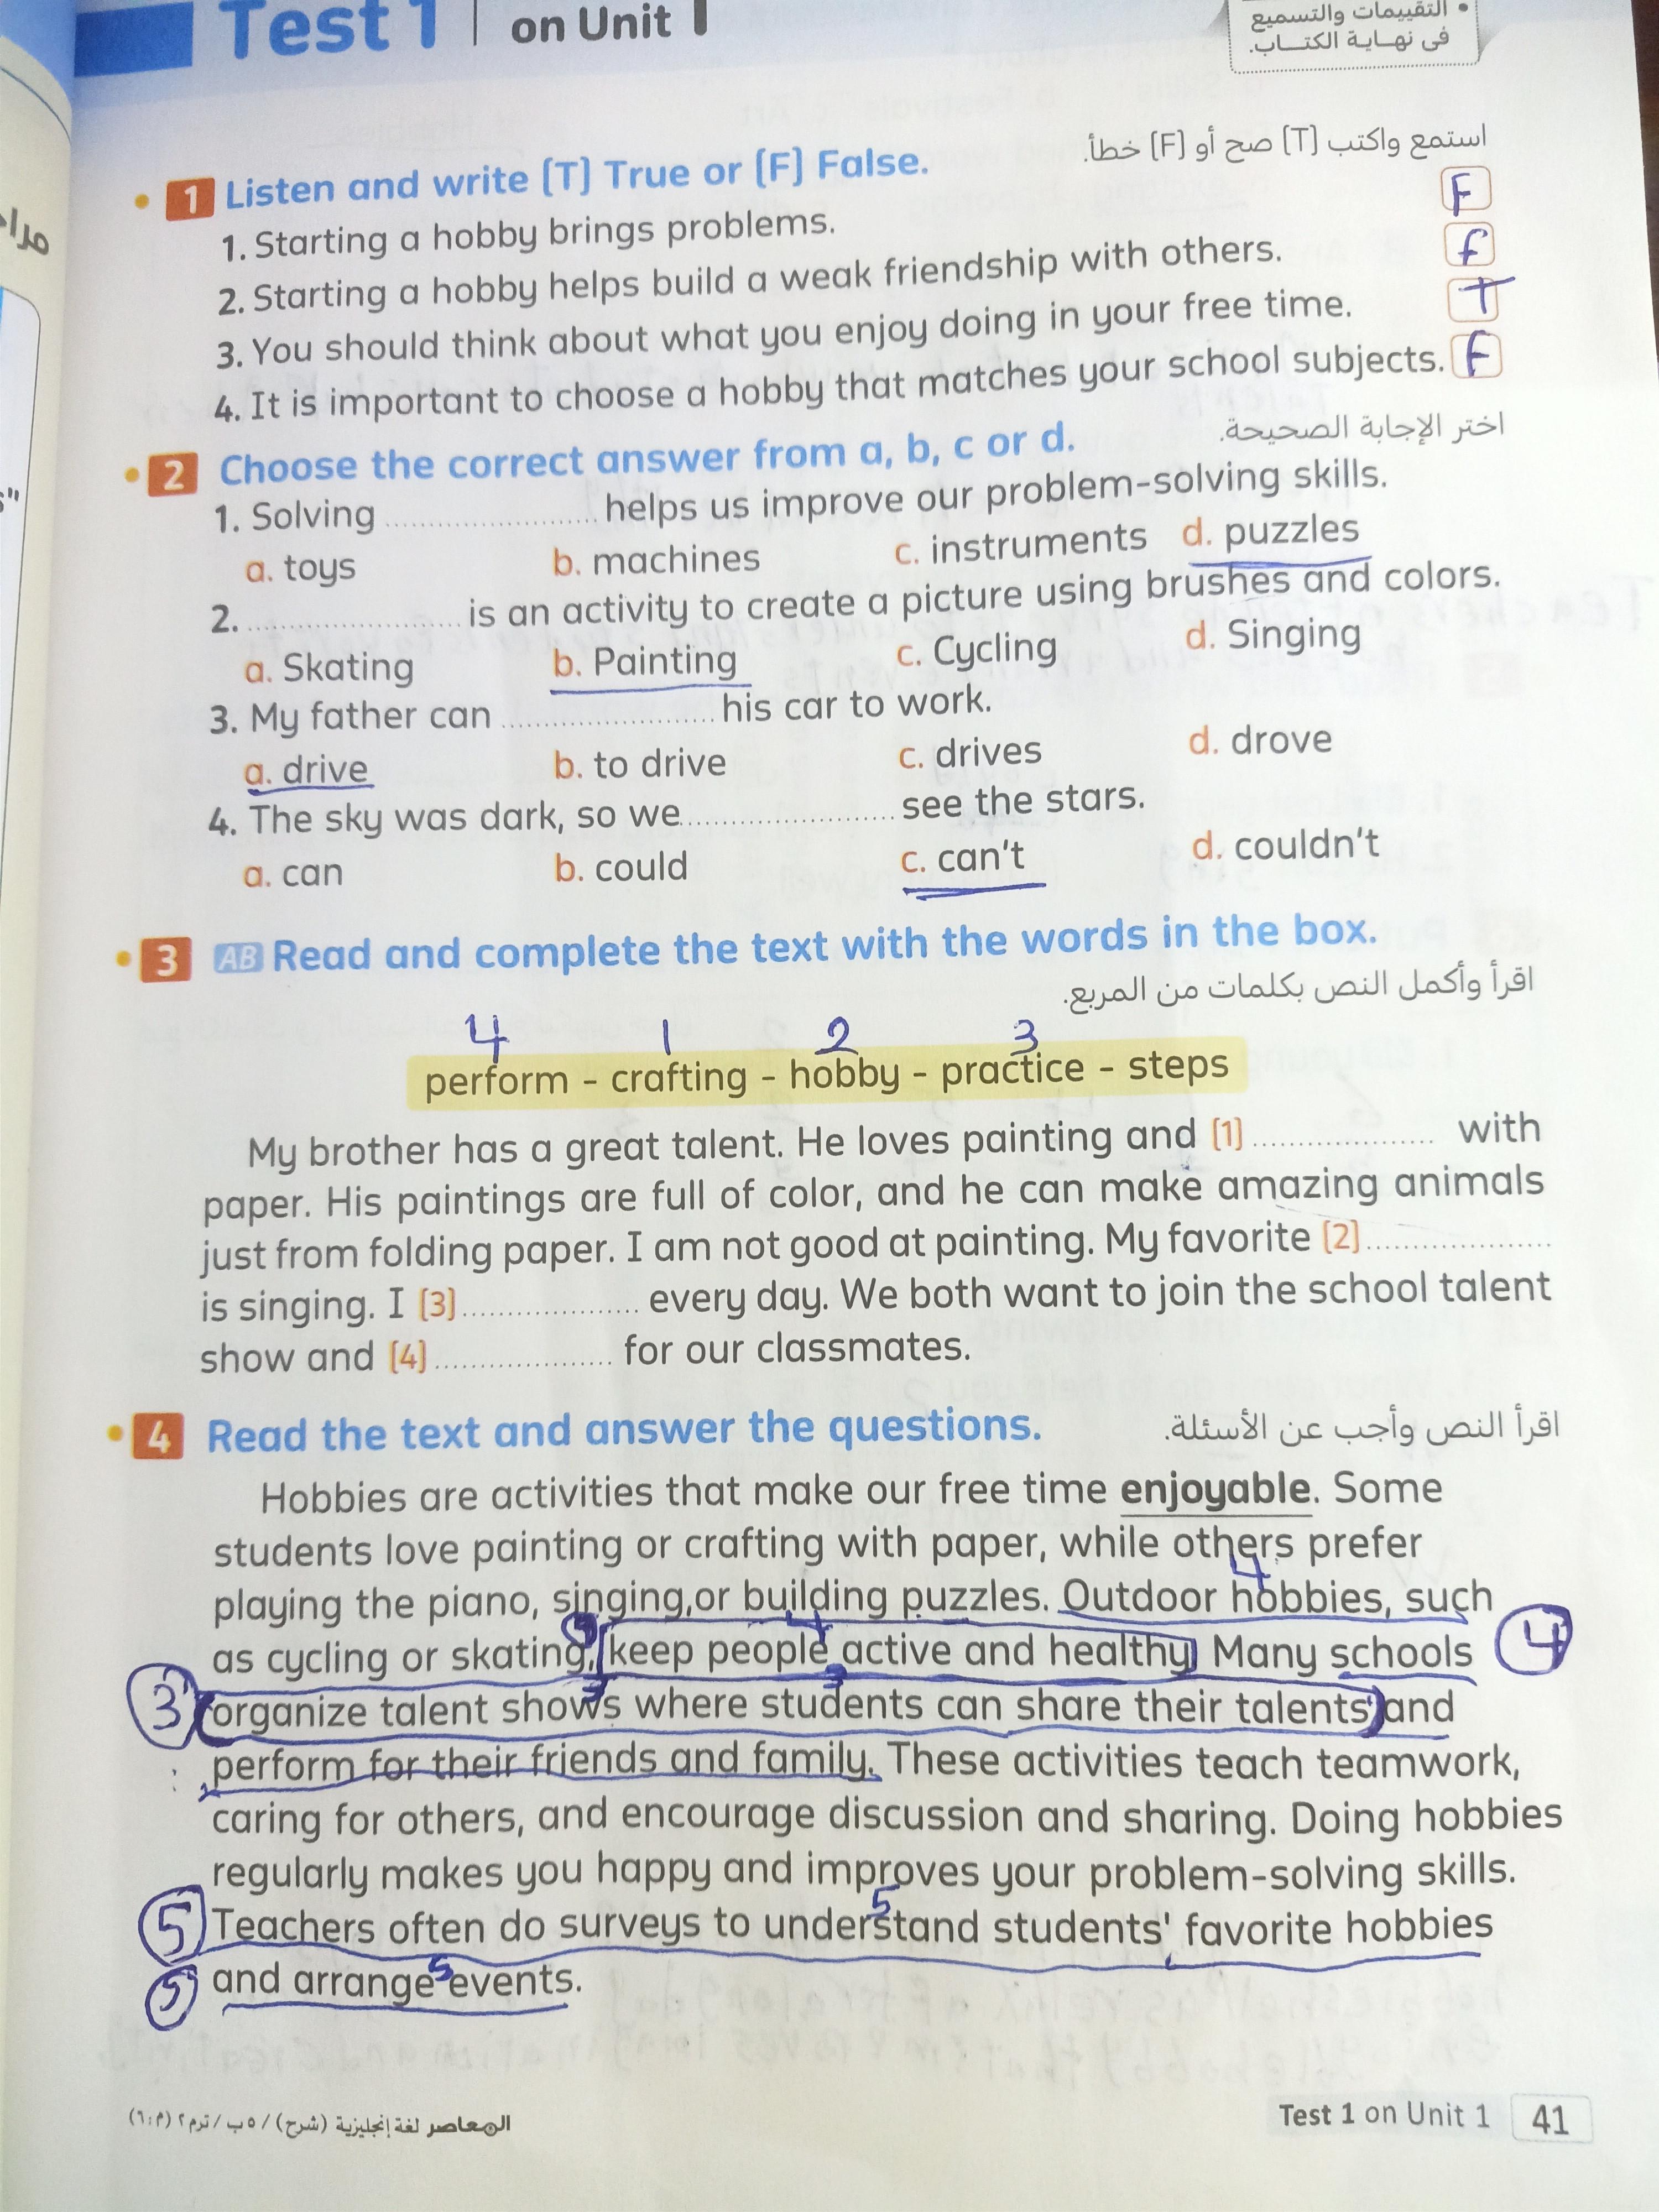 Test 1 | on Unit 1
• التقييمات والتسميع
فى نهـاية الكتـــاب.
1 Listen and write (T) True or (F) False.
استمع واكتب (T) صح أو (F) خطأ.
1. Starting a hobby brings problems. F
2. Starting a hobby helps build a weak friendship with others. f
3. You should think about what you enjoy doing in your free time. T
4. It is important to choose a hobby that matches your school subjects. F
2 Choose the correct answer from a, b, c or d.
اختر الإجابة الصحيحة.
1. Solving ........................ helps us improve our problem-solving skills.
a. toys b. machines c. instruments d. puzzles
2. ........................ is an activity to create a picture using brushes and colors.
a. Skating b. Painting c. Cycling d. Singing
3. My father can ........................ his car to work.
a. drive b. to drive c. drives d. drove
4. The sky was dark, so we ........................ see the stars.
a. can b. could c. can't d. couldn't
3 AB Read and complete the text with the words in the box.
اقرأ وأكمل النص بكلمات من المربع.
4 1 2 3
perform - crafting - hobby - practice - steps
My brother has a great talent. He loves painting and (1) .................... with
paper. His paintings are full of color, and he can make amazing animals
just from folding paper. I am not good at painting. My favorite (2) ....................
is singing. I (3) .................... every day. We both want to join the school talent
show and (4) .................... for our classmates.
4 Read the text and answer the questions.
اقرأ النص وأجب عن الأسئلة.
Hobbies are activities that make our free time enjoyable. Some
students love painting or crafting with paper, while others prefer
playing the piano, singing, or building puzzles. Outdoor hobbies, such
as cycling or skating, keep people active and healthy. Many schools 4
3 organize talent shows where students can share their talents and
perform for their friends and family. These activities teach teamwork,
caring for others, and encourage discussion and sharing. Doing hobbies
regularly makes you happy and improves your problem-solving skills.
5 Teachers often do surveys to understand students' favorite hobbies
5 and arrange events.
المعاصر لغة إنجليزية (شرح) / ٥ ب / ترم ٢ (م : ٦)
Test 1 on Unit 1 41